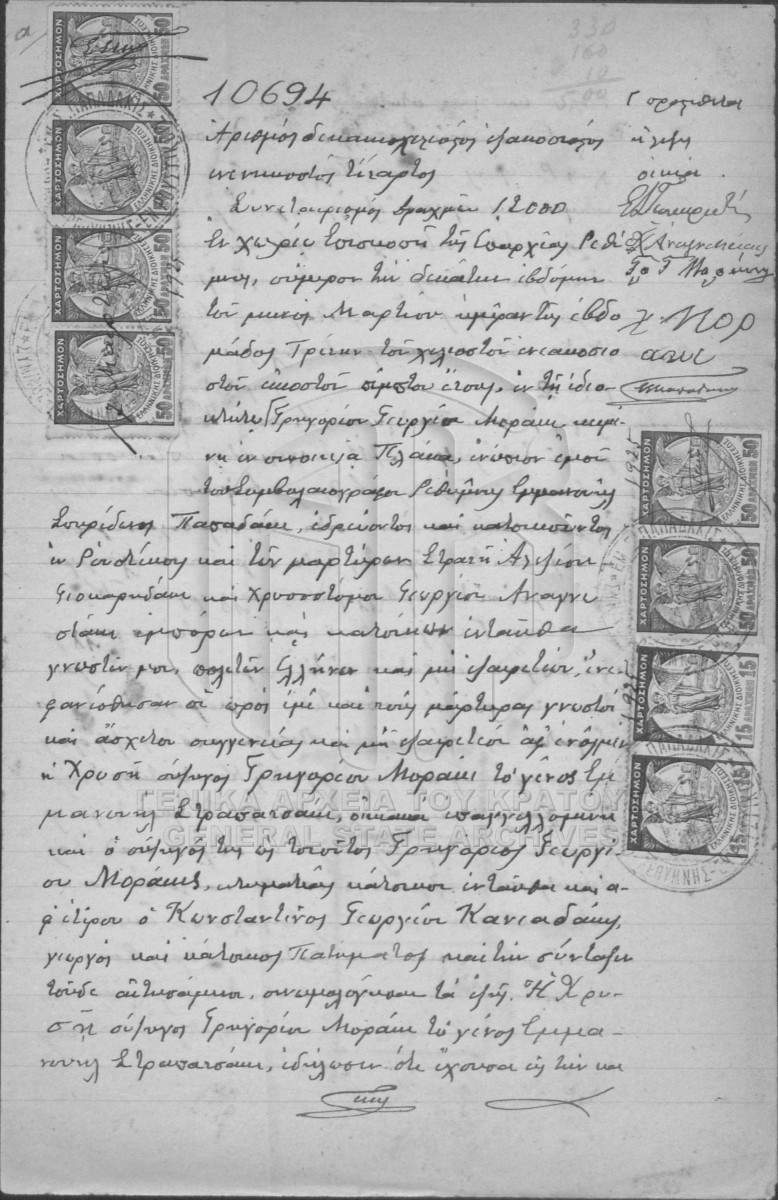 α)
330
160
10
500
10694
Αριθμός δεκακισχιλιοστός εξακοσιοστός
ενενηκοστός τέταρτος
Συνεταιρισμός δραχμών 12000
Εν χωρίω Επισκοπή της Επαρχίας Ρεθύ
μνης, σήμερον την δεκάτην εβδόμην
του μηνός Μαρτίου ημέραν της εβδο
μάδος Τρίτην του χιλιοστού εννεακοσιο
στού εικοστού πέμπτου έτους, εν τη ιδιο
κτήτω Γρηγορίου Γεωργίου Μοράκι κειμέ
νη εν συνοικία Πλάκα, ενώπιον εμού
του Συμβολαιογράφου Ρεθύμνης Εμμανουήλ
Σπυρίδωνος Παπαδάκι, εδρεύοντος και κατοικούντος
εν Ρουστίκοις και των μαρτύρων Στρατή Αλεξίου
Γιοκαρηδάκι και Χρυσοστόμου Γεωργίου Αναγνω
στάκι εμπόρων και κατοίκων ενταύθα
γνωστών μου, πολιτών Ελλήνων και μη εξαιρετέων, ενε
φανίσθησαν οι προς εμέ και τους μάρτυρας γνωστοί
και άσχετοι συγγενείας και μη εξαιρετέοι αφ' ενός μεν
η Χρυσή σύζυγος Γρηγορίου Μοράκι το γένος Εμ
μανουήλ Στραπατσάκι, οικιακά επαγγελλομένη
και ο σύζυγός της ως τοιούτος Γρηγόριος Γεωργί-
ου Μοράκις, κτηματίας κάτοικοι ενταύθα και α-
φ' ετέρου ο Κωνσταντίνος Γεωργίου Κανιαδάκις,
γεωργός και κάτοικος Πατήματος και την σύνταξιν
τούδε αιτησάμενοι, συνωμολόγησαν τα εξής. Ή Χρυ-
σή σύζυγος Γρηγορίου Μοράκι το γένος Εμμα-
νουήλ Στραπατσάκι, εδήλωσεν ότι έχουσα εις την κα
Γ προστίθεται
η λέξη
οικία
Χ Αναγνωστάκις
Γρ Γ Μοράκις
Χ Μορ
ακι
ΧΑΡΤΟΣΗΜΟΝ
ΕΛΛΗΝΙΚΗΣ ΔΙΟΙΚΗΣΕΩΣ
50 ΔΡΑΧΜΑΙ 50
15 ΔΡΑΧΜΑΙ 15
ΠΑΠΑΔΑΚΙΣ
1925
ΓΕΝΙΚΑ ΑΡΧΕΙΑ ΤΟΥ ΚΡΑΤΟΥΣ
GENERAL STATE ARCHIVES